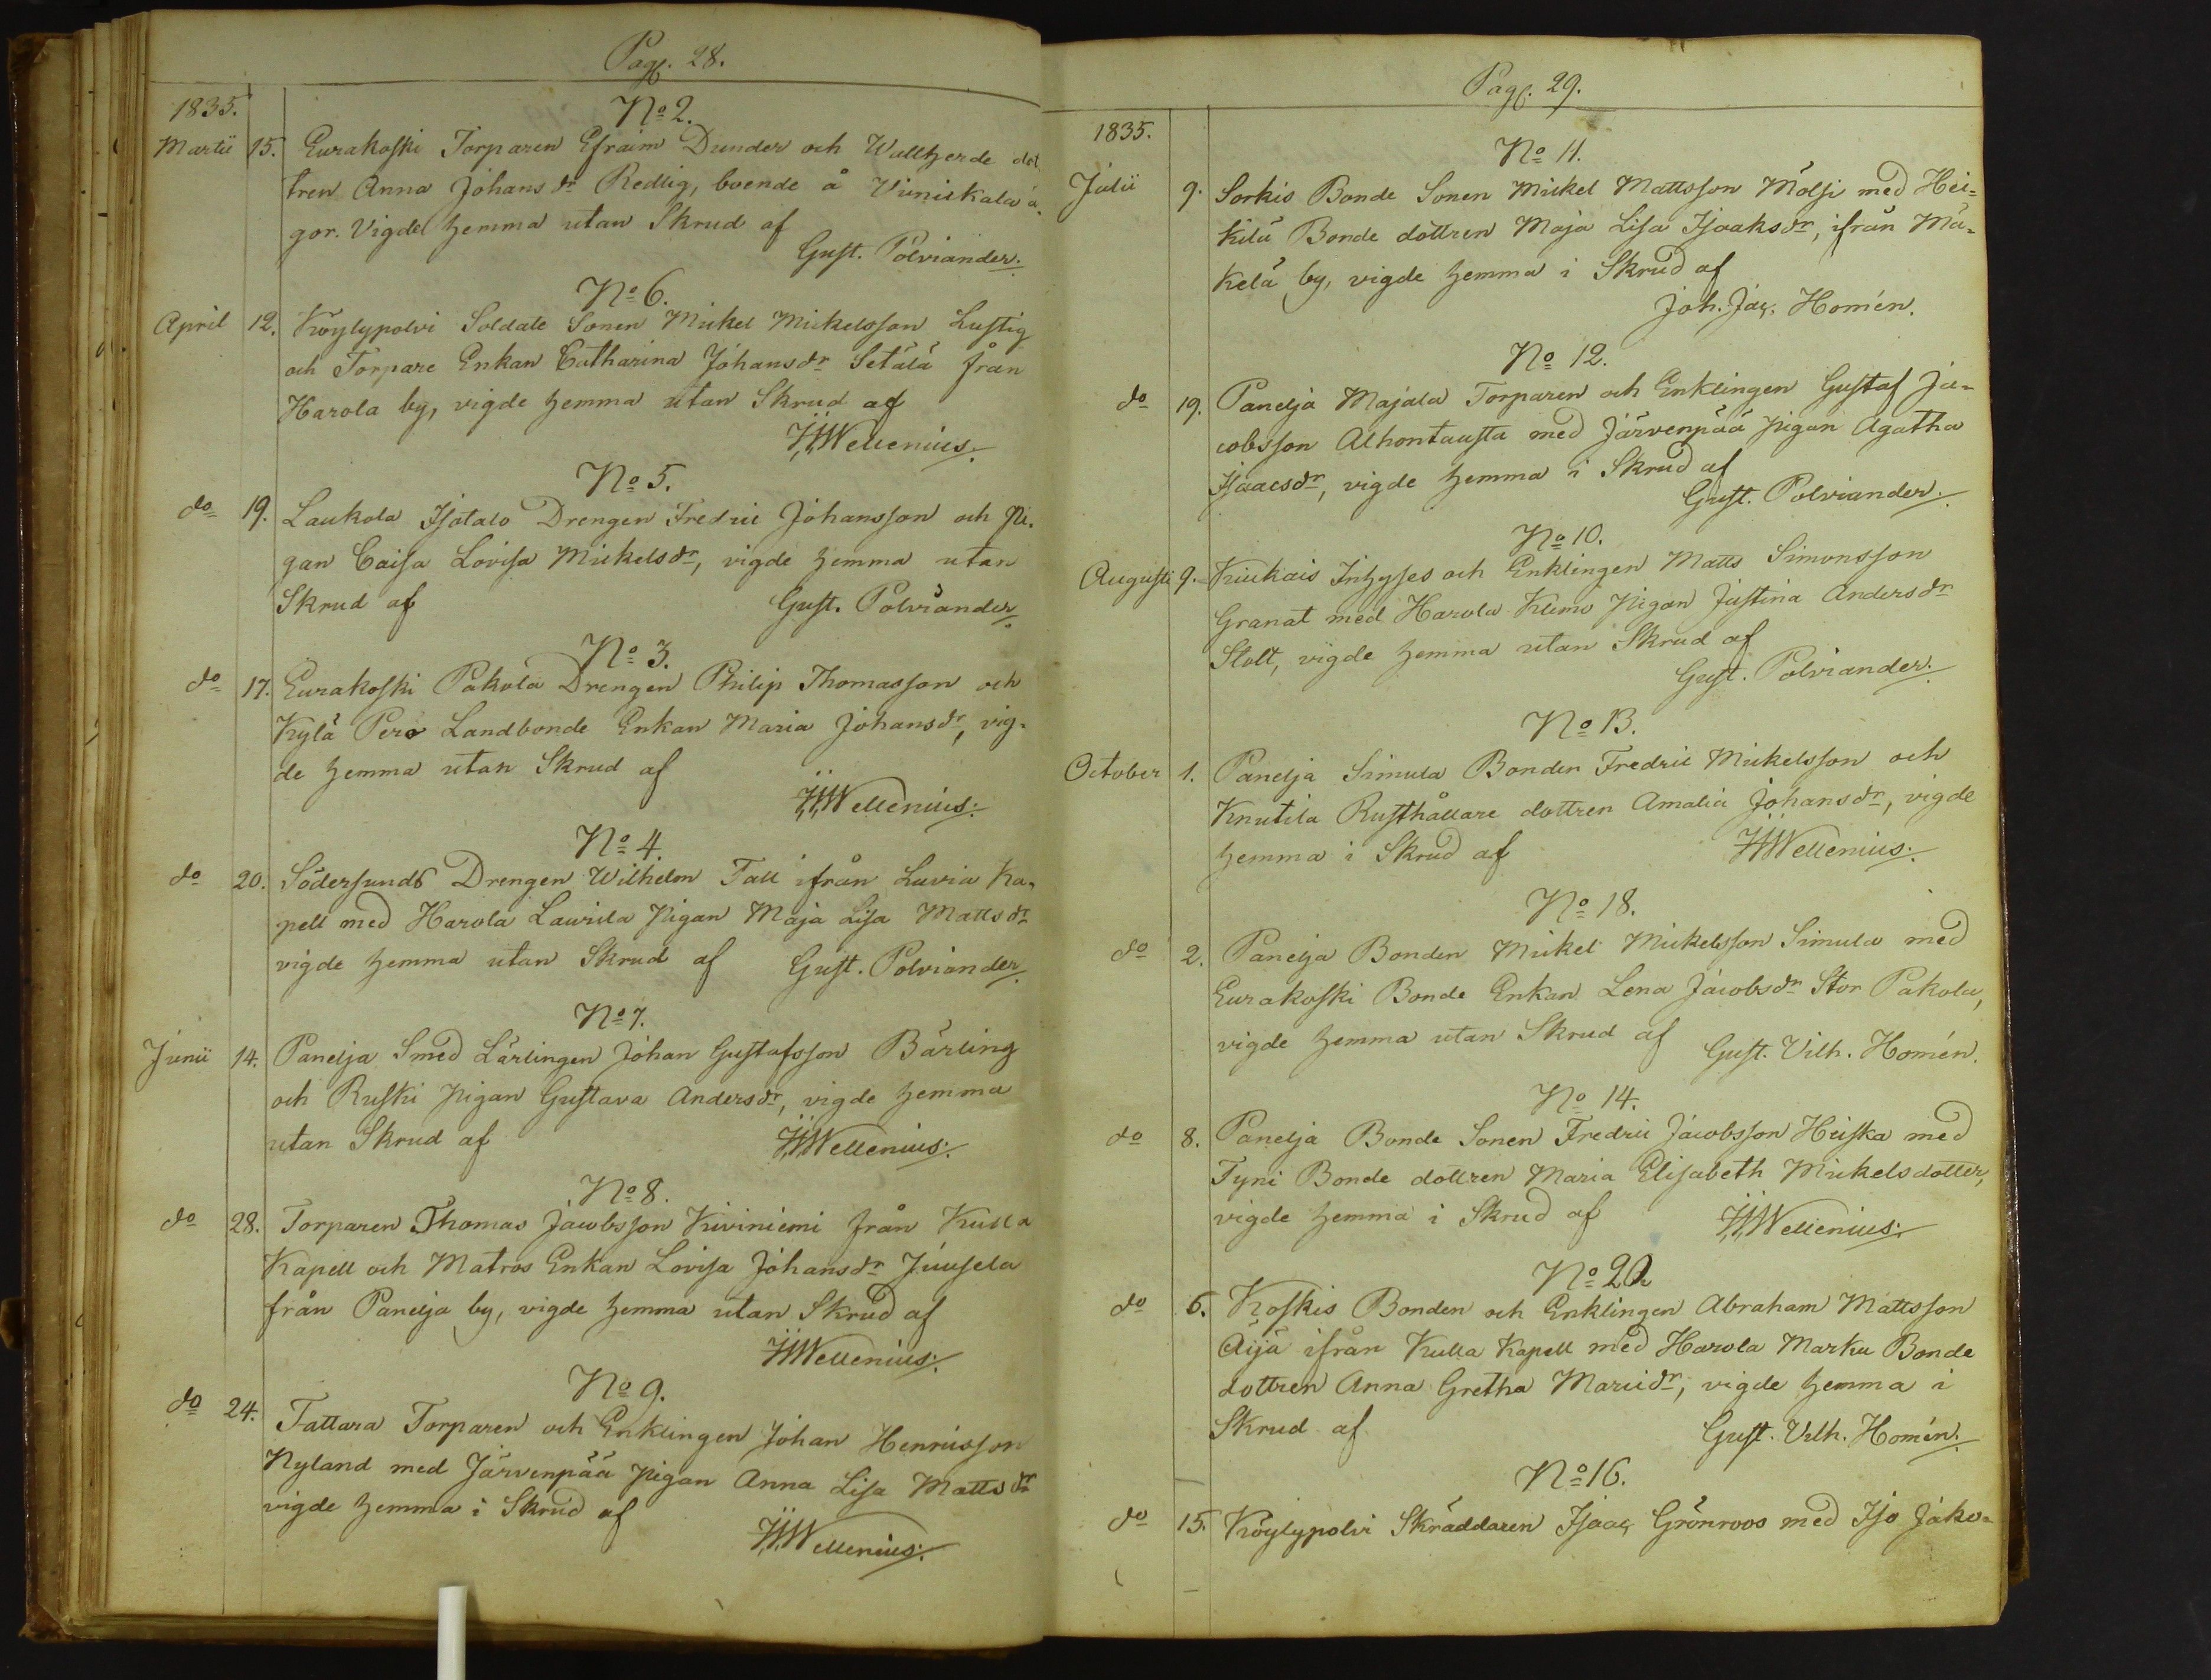 Pag. 28.
1835.
No 2.
Martii 15. Eurakoski Torparen Efraim Dunder och Wallherde dot
tren Anna Johansdr Redlig, boende å Viniskala ä-
gor. Vigde hemma utan Skrud af
Gust. Polviander.
No 6.
April 12. Köylypolvi Soldate Sonen Mickel Mickelsson Lustig
och Torpare Enkan Catharina Johansdr Setälä från
Harola by, vigde hemma utan Skrud af
Wellenius.
No 5.
do 19. Laukola Isotalo Drengen Fredric Johansson och Pi-
gan Caisa Lovisa Mickelsdr, vigde hemma utan
Skrud af Gust. Polviander
No 3.
do 17. Eurakoski Pakola Drengen Philip Thomasson och
Kylä Pero Landbonde Enkan Maria Johansdr, vig-
de hemma utan Skrud af
Wellenius.
No 4.
do 20. Södersunds Drengen Wilhelm Tall ifrån Luvia Ka-
pell med Harola Laurila Pigan Maja Lisa Mattsdr
vigde hemma utan Skrud af Gust. Polviander
No 7.
Junii 14. Panelja Smed Lärlingen Johan Gustafsson Bärling
och Ruski Pigan Gustava Andersdr, vigde hemma
utan Skrud af Wellenius.
No 8.
do 28. Torparen Thomas Jacobsson Kiviniemi från Kulla
Kapell och Matros Enkan Lovisa Johansdr Juusela
från Panelja by, vigde hemma utan Skrud af
Wellenius.
No 9.
do 24. Tattara Torparen och Enklingen Johan Henricsson
Nyland med Järvenpää Pigan Anna Lisa Mattsdr
vigde hemma i Skrud af
Wellenius.
Pag. 29.
1835.
No 11.
Julii 9. Sorkis Bonde Sonen Mickel Mattsson Mölsi med Hei-
kilä Bonde dottren Maja Lisa Isaaksdr, ifrån Mä-
kelä by, vigde hemma i Skrud af
Joh. Jac. Homén.
No 12.
do 19. Panelja Majala Torparen och Enklingen Gustaf Ja-
cobsson Alhontausta med Järvenpää Pigan Agatha
Isaacsdr, vigde hemma i Skrud af
Gust. Polviander.
No 10.
Augusti 9. Kiukais Inhyses och Enklingen Matts Simonsson
Granat med Harola Klemo Pigan Justina Andersdr
Stolt, vigde hemma utan Skrud af
Gust. Polviander.
No 13.
October 1. Panelja Simula Bonden Fredric Mickelsson och
Knutila Rusthållare dottren Amalia Johansdr, vigde
hemma i Skrud af Wellenius.
No 18.
do 2. Panelja Bonden Mickel Mickelsson Simula med
Eurakoski Bonde Enkan Lena Jacobsdr Stor Pakola,
vigde hemma utan Skrud af Gust. Vilh. Homén.
No 14.
do 8. Panelja Bonde Sonen Fredric Jacobsson Heiska med
Tyni Bonde dottren Maria Elisabeth Mickelsdotter,
vigde hemma i Skrud af Wellenius.
No 20
do 6. Koskis Bonden och Enklingen Abraham Mattsson
Äijä ifrån Kulla Kapell med Harola Marku Bonde
dottren Anna Gretha Maridr, vigde hemma i
Skrud af Gust. Vilh. Homén.
No 16.
do 15. Köylypolvi Skräddaren Isaac Grönroos med Iso Jako-